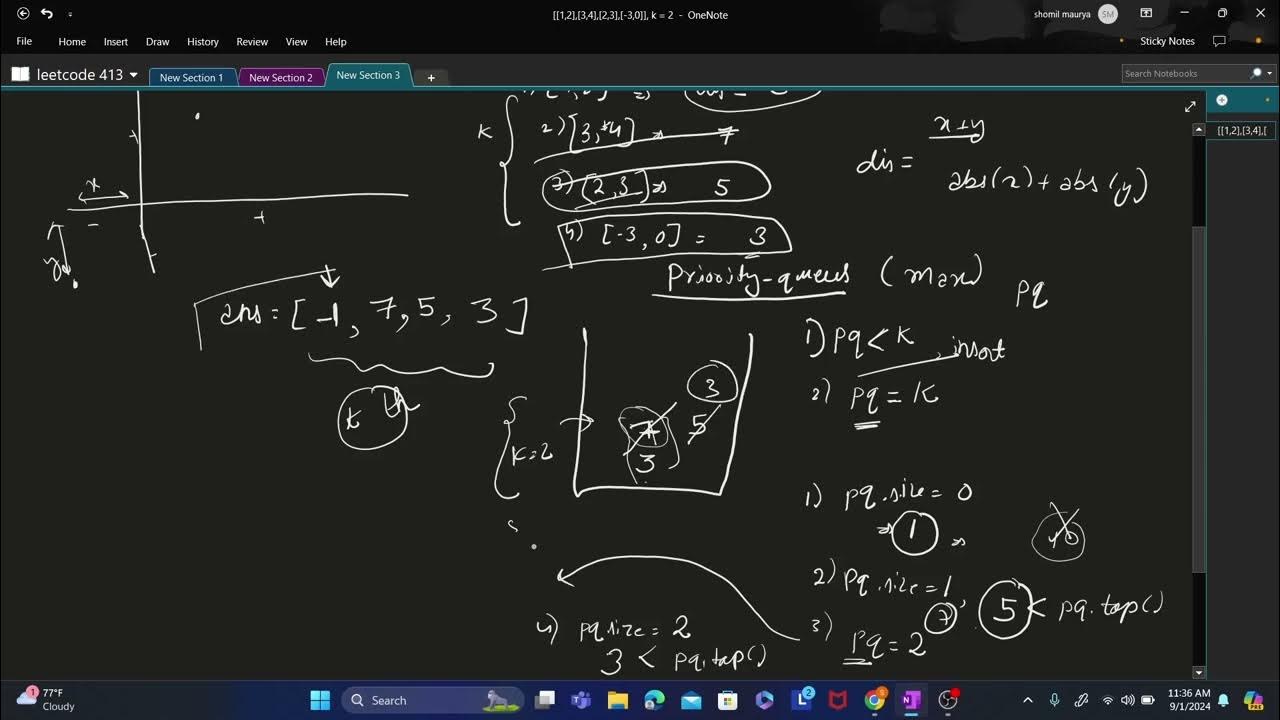 [[1,2],[3,4],[2,3],[-3,0]], k = 2 - OneNote
shomil maurya
SM
File Home Insert Draw History Review View Help
Sticky Notes
leetcode 413
New Section 1
New Section 2
New Section 3
+
Search Notebooks
[[1,2],[3,4],[
K
2) [3, 4] 7
[2,3] 5
[-3, 0] = 3
x+y
dis = abs(x) + abs(y)
x
y
+
-
Priority-queue (max) pq
ans = [ -1, 7, 5, 3 ]
k th
K=2
7 5 3
3
1) pq < K, insert
2) pq = K
1) pq.size = 0
1
2) pq.size = 1,
7
5 < pq.top()
3) pq = 2
4) pq.size = 2
3 < pq.top()
1
77°F
Cloudy
Search
2
5
11:36 AM
9/1/2024